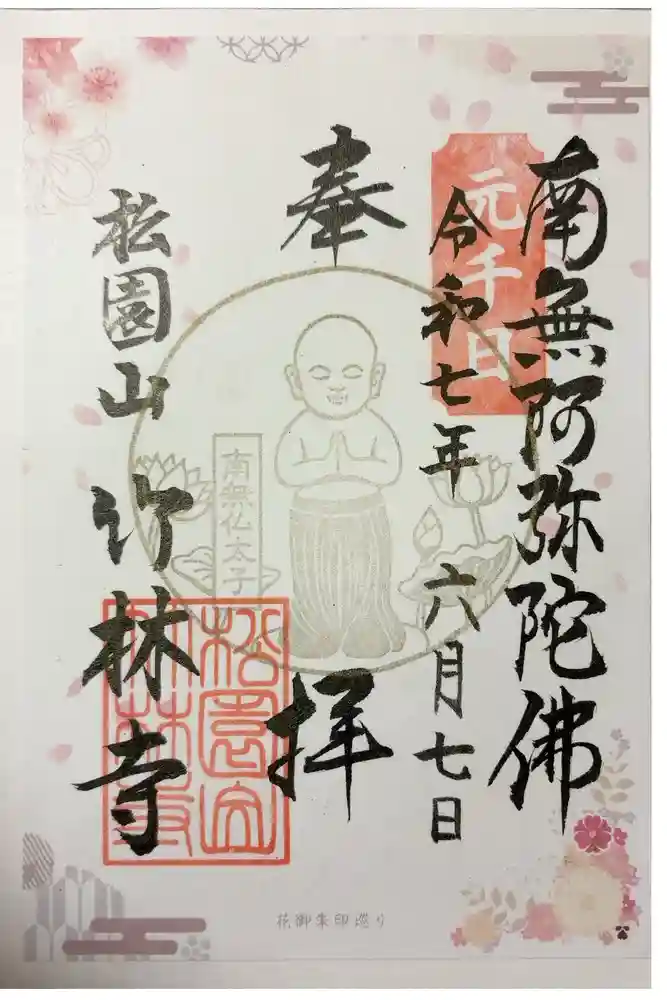 南無阿弥陀佛
元千日
令和七年 六月七日
奉拝
南無仏太子
松園山 竹林寺
松園山
竹林寺
花御朱印巡り